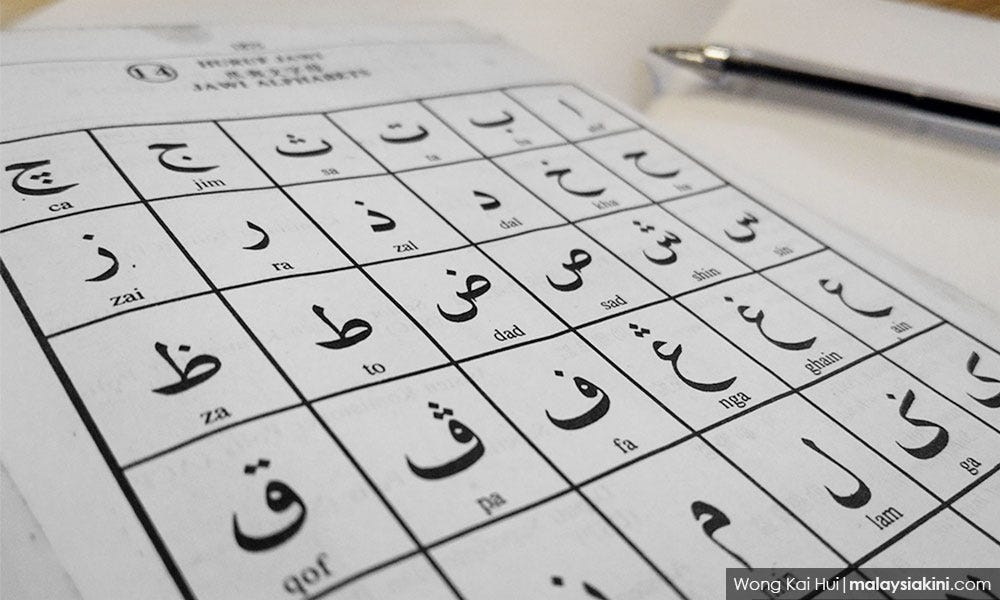 14 HURUF JAWI
JAWI ALPHABETS
ا ب ت ث ج چ
ba ta sa jim ca
ح خ د ذ ر ز
ha kha dal zal ra zai
س ش ص ض ط ظ
sin shin sad dad to za
ع غ ڠ ف ڤ ق
ain ghain nga fa pa qof
ݢ ل م
ga lam
Wong Kai Hui | malaysiakini.com